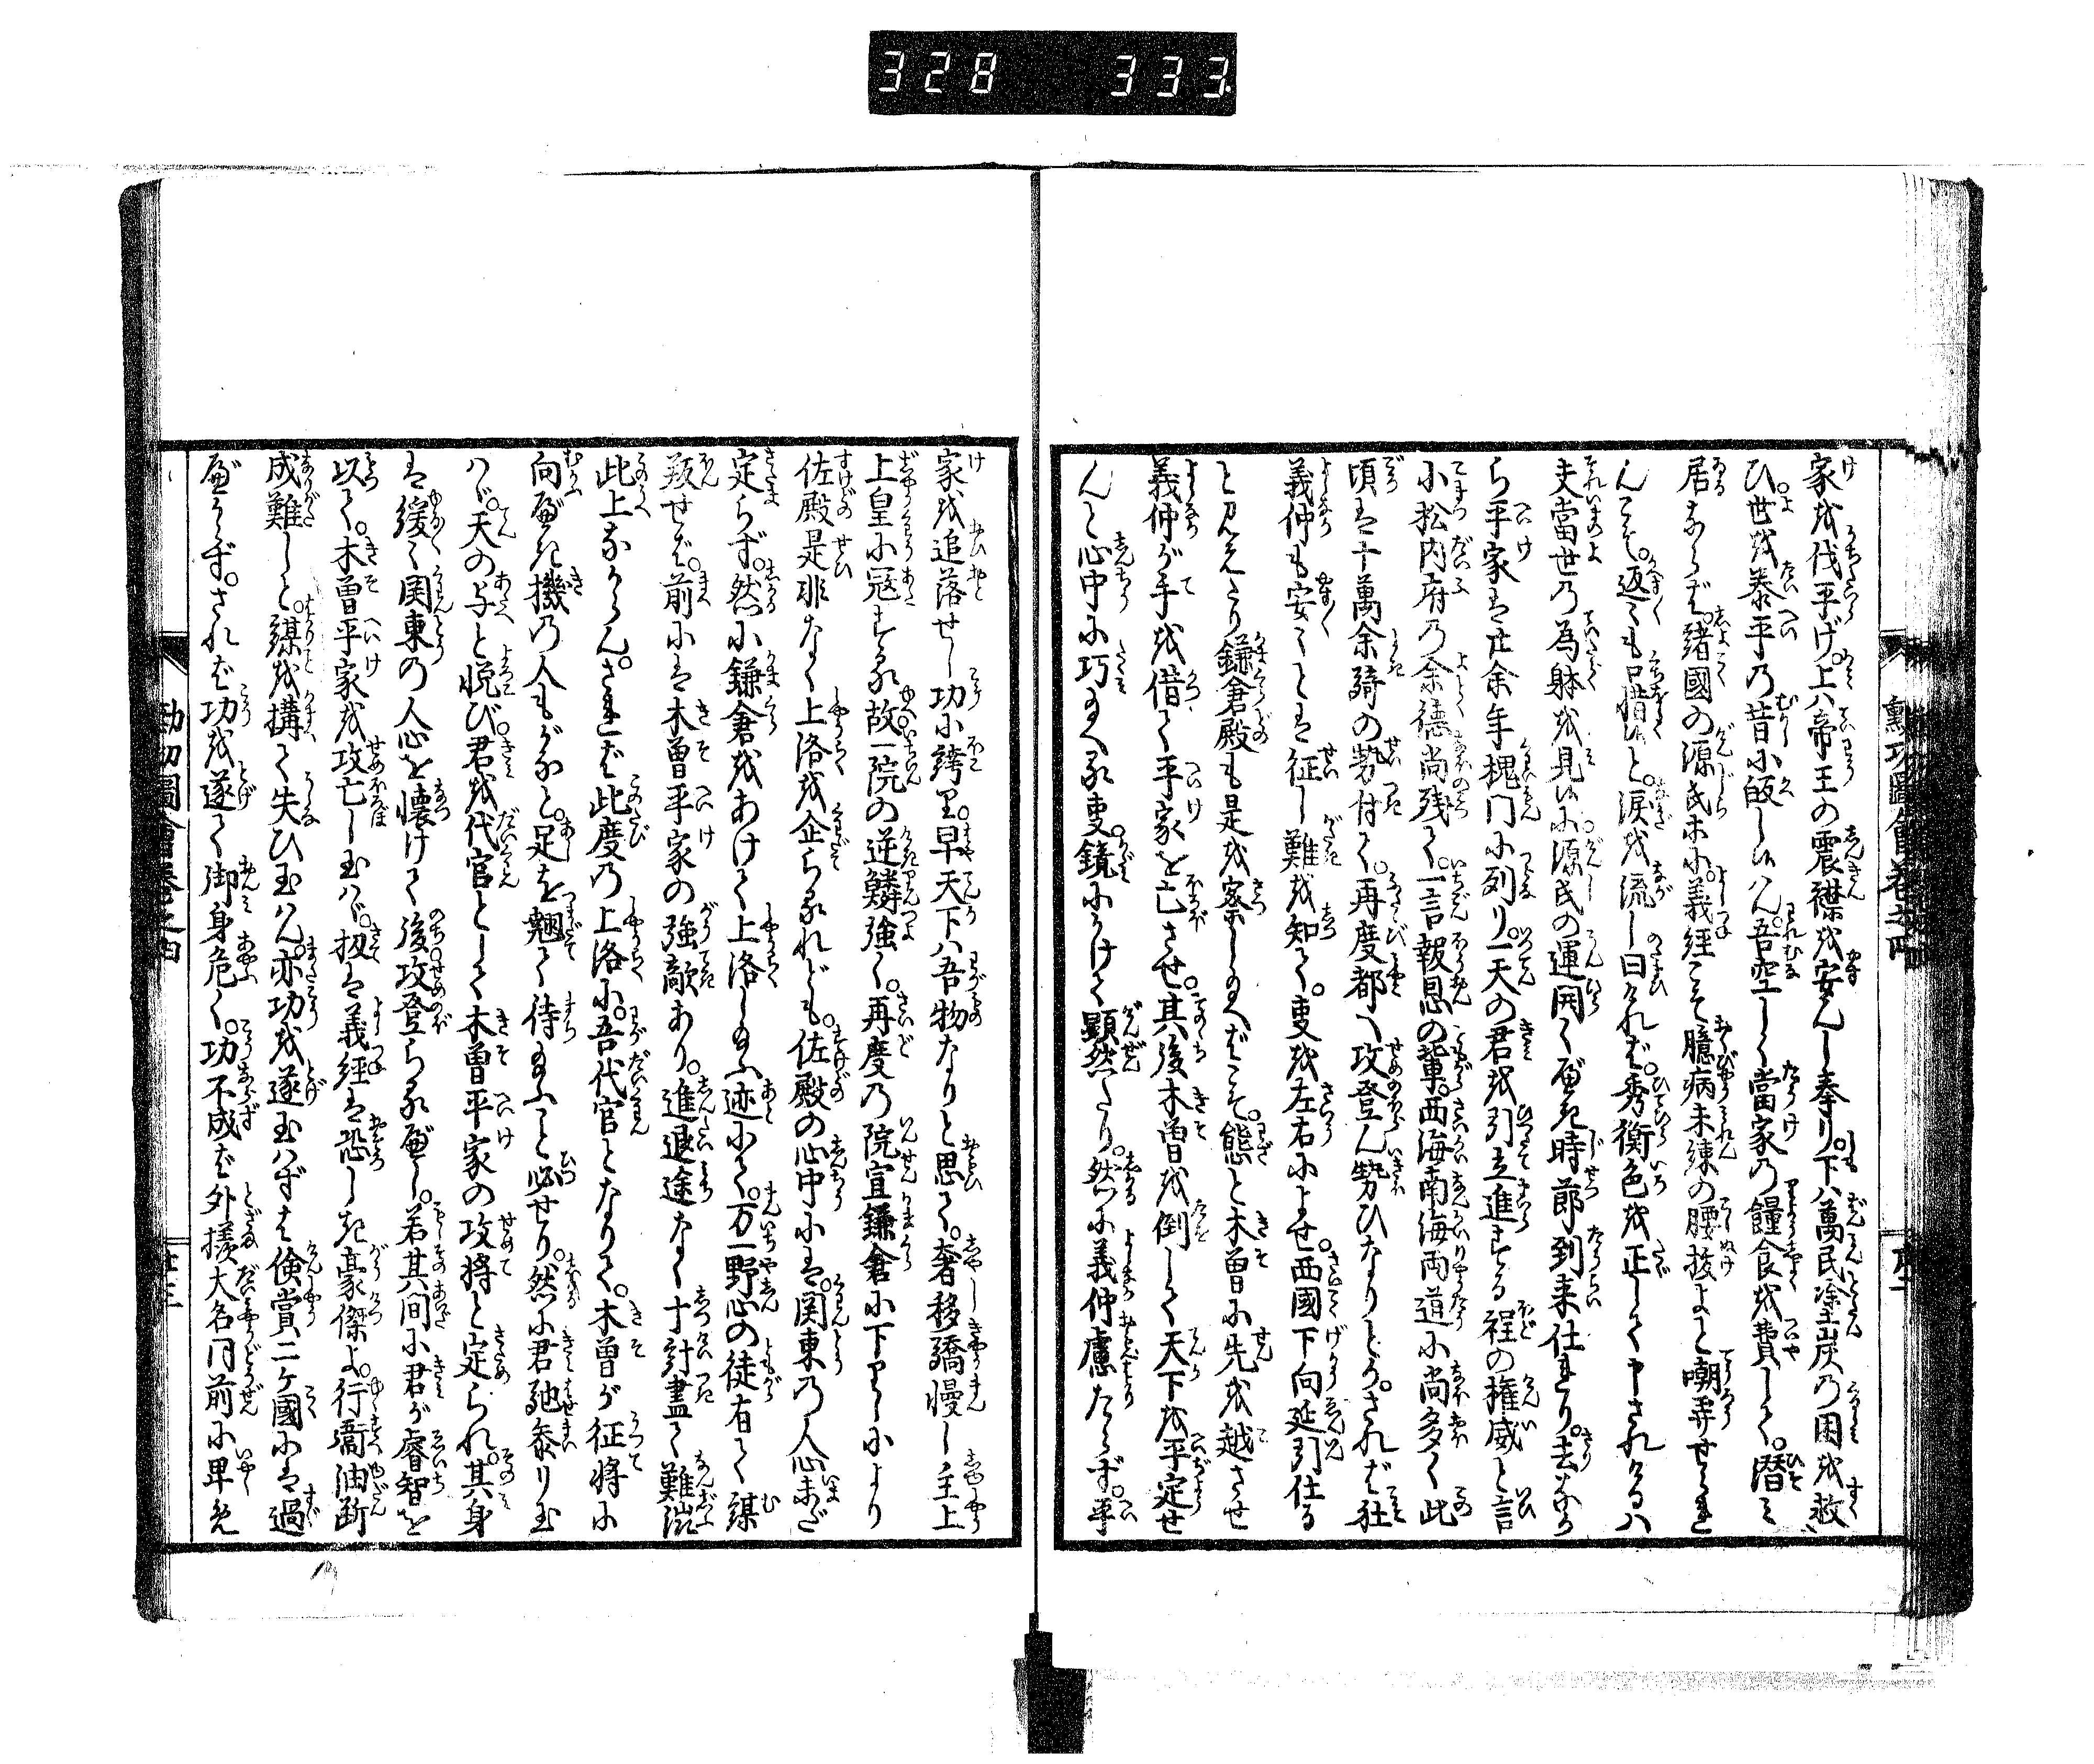 328 333
家を伐平げ。上ハ帝王の震襟を安んし奉り。下ハ萬民塗炭乃困を救
ひ。世を泰平乃昔に皈し候ハん。吾空しく當家乃糧食を費して。潜ミ
居ならば。諸國の源氏ホに。義経こそ臆病未練の腰抜よと嘲弄せられ
んこそ。返々も口惜候と。涙を流し曰けれど。秀衡色を正して申されけるハ
夫當世乃為躰を見候に。源氏の運開くべき時節到来仕れり。去ながら
ら平家は廿余年槐門に列り。一天の君を引立進する程の権威と言
小松内府乃余徳尚残て。一言報恩の輩。西海南海両道に尚多く此
頃は十萬余騎の勢付て。再度都へ攻登ん勢ひなりとか。されば社
義仲も安々とは征し難を知て。叓を左右によせ。西國下向延引仕る
と見えたり鎌倉殿も是を察し玉へばこそ。態と木曽に先を越させ
義仲が手を借て平家を亡させ。其後木曽を倒して天下を平定せ
んと心中に巧玉へる叓。鏡にかけて顕然たり。然に義仲慮たらず。平
勲功圖會巻之四
家を追落せし功に誇り。早天下ハ吾物なりと思て。奢移驕慢し主上
上皇に冦する故。一院の逆鱗強く。再度乃院宣鎌倉に下りしにより
佐殿是非なく上洛を企らるれども。佐殿の心中には。関東乃人心未だ
定らず。然に鎌倉をあけて上洛し玉ふ迹にて。万一野心の徒有て謀
叛せば。前には木曽平家の強敵あり。進退途なく寸計盡て難澁
此上なからん。されば此度乃上洛に。吾代官となりて。木曽が征将に
向べき機乃人もがなと。足を翹て待玉ふこと必せり。然に君馳参り玉
ハゞ。天の与と悦び。君を代官として木曽平家の攻将と定られ。其身
は緩々関東の人心を懐けて後攻登らるべし。若其間に君が睿智を
以て。木曽平家を攻亡し玉ハゞ。扨は義経は恐しき豪傑よ。行衛油断
成難しと。謀を構て失ひ玉はん。亦功を遂玉ハずは倹賞二ケ國には過
べからず。されば功を遂て御身危く。功不成ば外様大名同前に卑め
勲功圖會巻之四
廿三